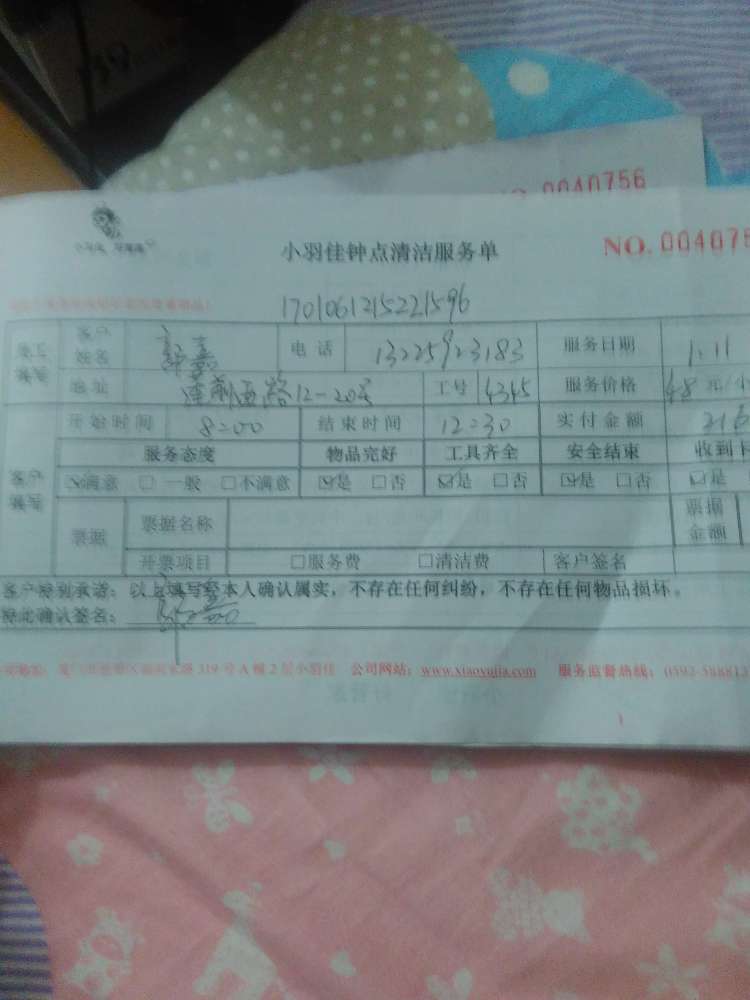 NO. 0040756
小羽佳钟点清洁服务单
NO. 004075
1701061215221596
员工填写 客户姓名 电话 13225923183 服务日期 1.11
地址 莲前西路12-20号 工号 4345 服务价格 48 元/小
客户填写 开始时间 8:00 结束时间 12:30 实付金额 216
服务态度 物品完好 工具齐全 安全结束 收到
☑满意 □一般 □不满意 ☑是 □否 ☑是 □否 ☑是 □否 ☑是
票据 票据名称 票据金额
开票项目 □服务费 □清洁费 客户签名
客户特别承诺：以上填写经本人确认属实，不存在任何纠纷，不存在任何物品损坏。
特此确认签名：
319号A幢2层小羽佳 公司网站：www.xiaoyujia.com 服务监督热线：0592-588813